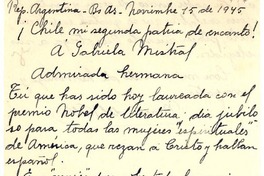 Rep. Argentina - Bs As - Noviembre 15 de 1945
¡Chile mi segunda patria de encanto!
A Gabriela Mistral
Admirada hermana
Tú que has sido hoy laureada con el
premio Nobel de literatura, día jubilo
so para todas las mujeres "espirituales"
de America, que rezan a Cristo y hablan
español.